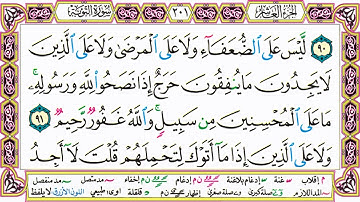 الجزء العاشر ٢٠١ سورة التوبة
٩٠ لَّيْسَ عَلَى الضُّعَفَآءِ وَلَا عَلَى الْمَرْضَىٰ وَلَا عَلَى الَّذِينَ
لَا يَجِدُونَ مَا يُنفِقُونَ حَرَجٌ إِذَا نَصَحُوا۟ لِلَّهِ وَرَسُولِهِۦ ۚ
مَا عَلَى الْمُحْسِنِينَ مِن سَبِيلٍ ۚ وَاللَّهُ غَفُورٌ رَّحِيمٌ ٩١
وَلَا عَلَى الَّذِينَ إِذَا مَآ أَتَوْكَ لِتَحْمِلَهُمْ قُلْتَ لَآ أَجِدُ